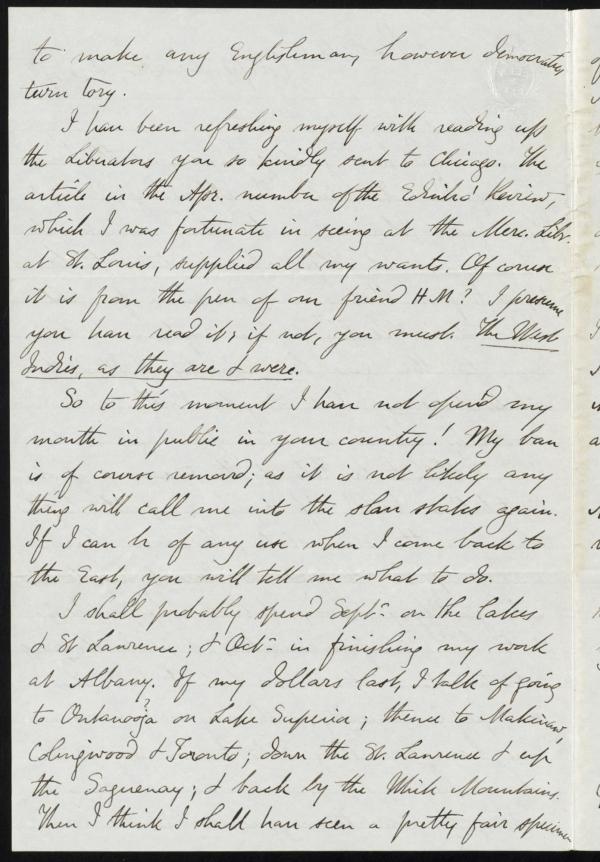 to make any Englishman, however democratic,
turn tory.
I have been refreshing myself with reading up
the Liberators you so kindly sent to Chicago. The
article in the Apr. number of the Edinbro' Review,
which I was fortunate in seeing at the Merc. Libr.
at St. Louis, supplied all my wants. Of course
it is from the pen of our friend HM? I presume
you have read it; if not, you must. The West
Indies, as they are & were.
So to this moment I have not open'd my
mouth in public in your country! My ban
is of course remov'd; as it is not likely any
thing will call me into the slave states again.
If I can be of any use when I come back to
the East, you will tell me what to do.
I shall probably spend Septr on the lakes
& St Lawrence; & Octr in finishing my work
at Albany. If my dollars last, I talk of going
to Ontanooja? on Lake Superior; thence to Makinaw,
Colingwood & Toronto; down the St. Lawrence & up
the Saguenay; & back by the White Mountains.
Then I think I shall have seen a pretty fair specimen